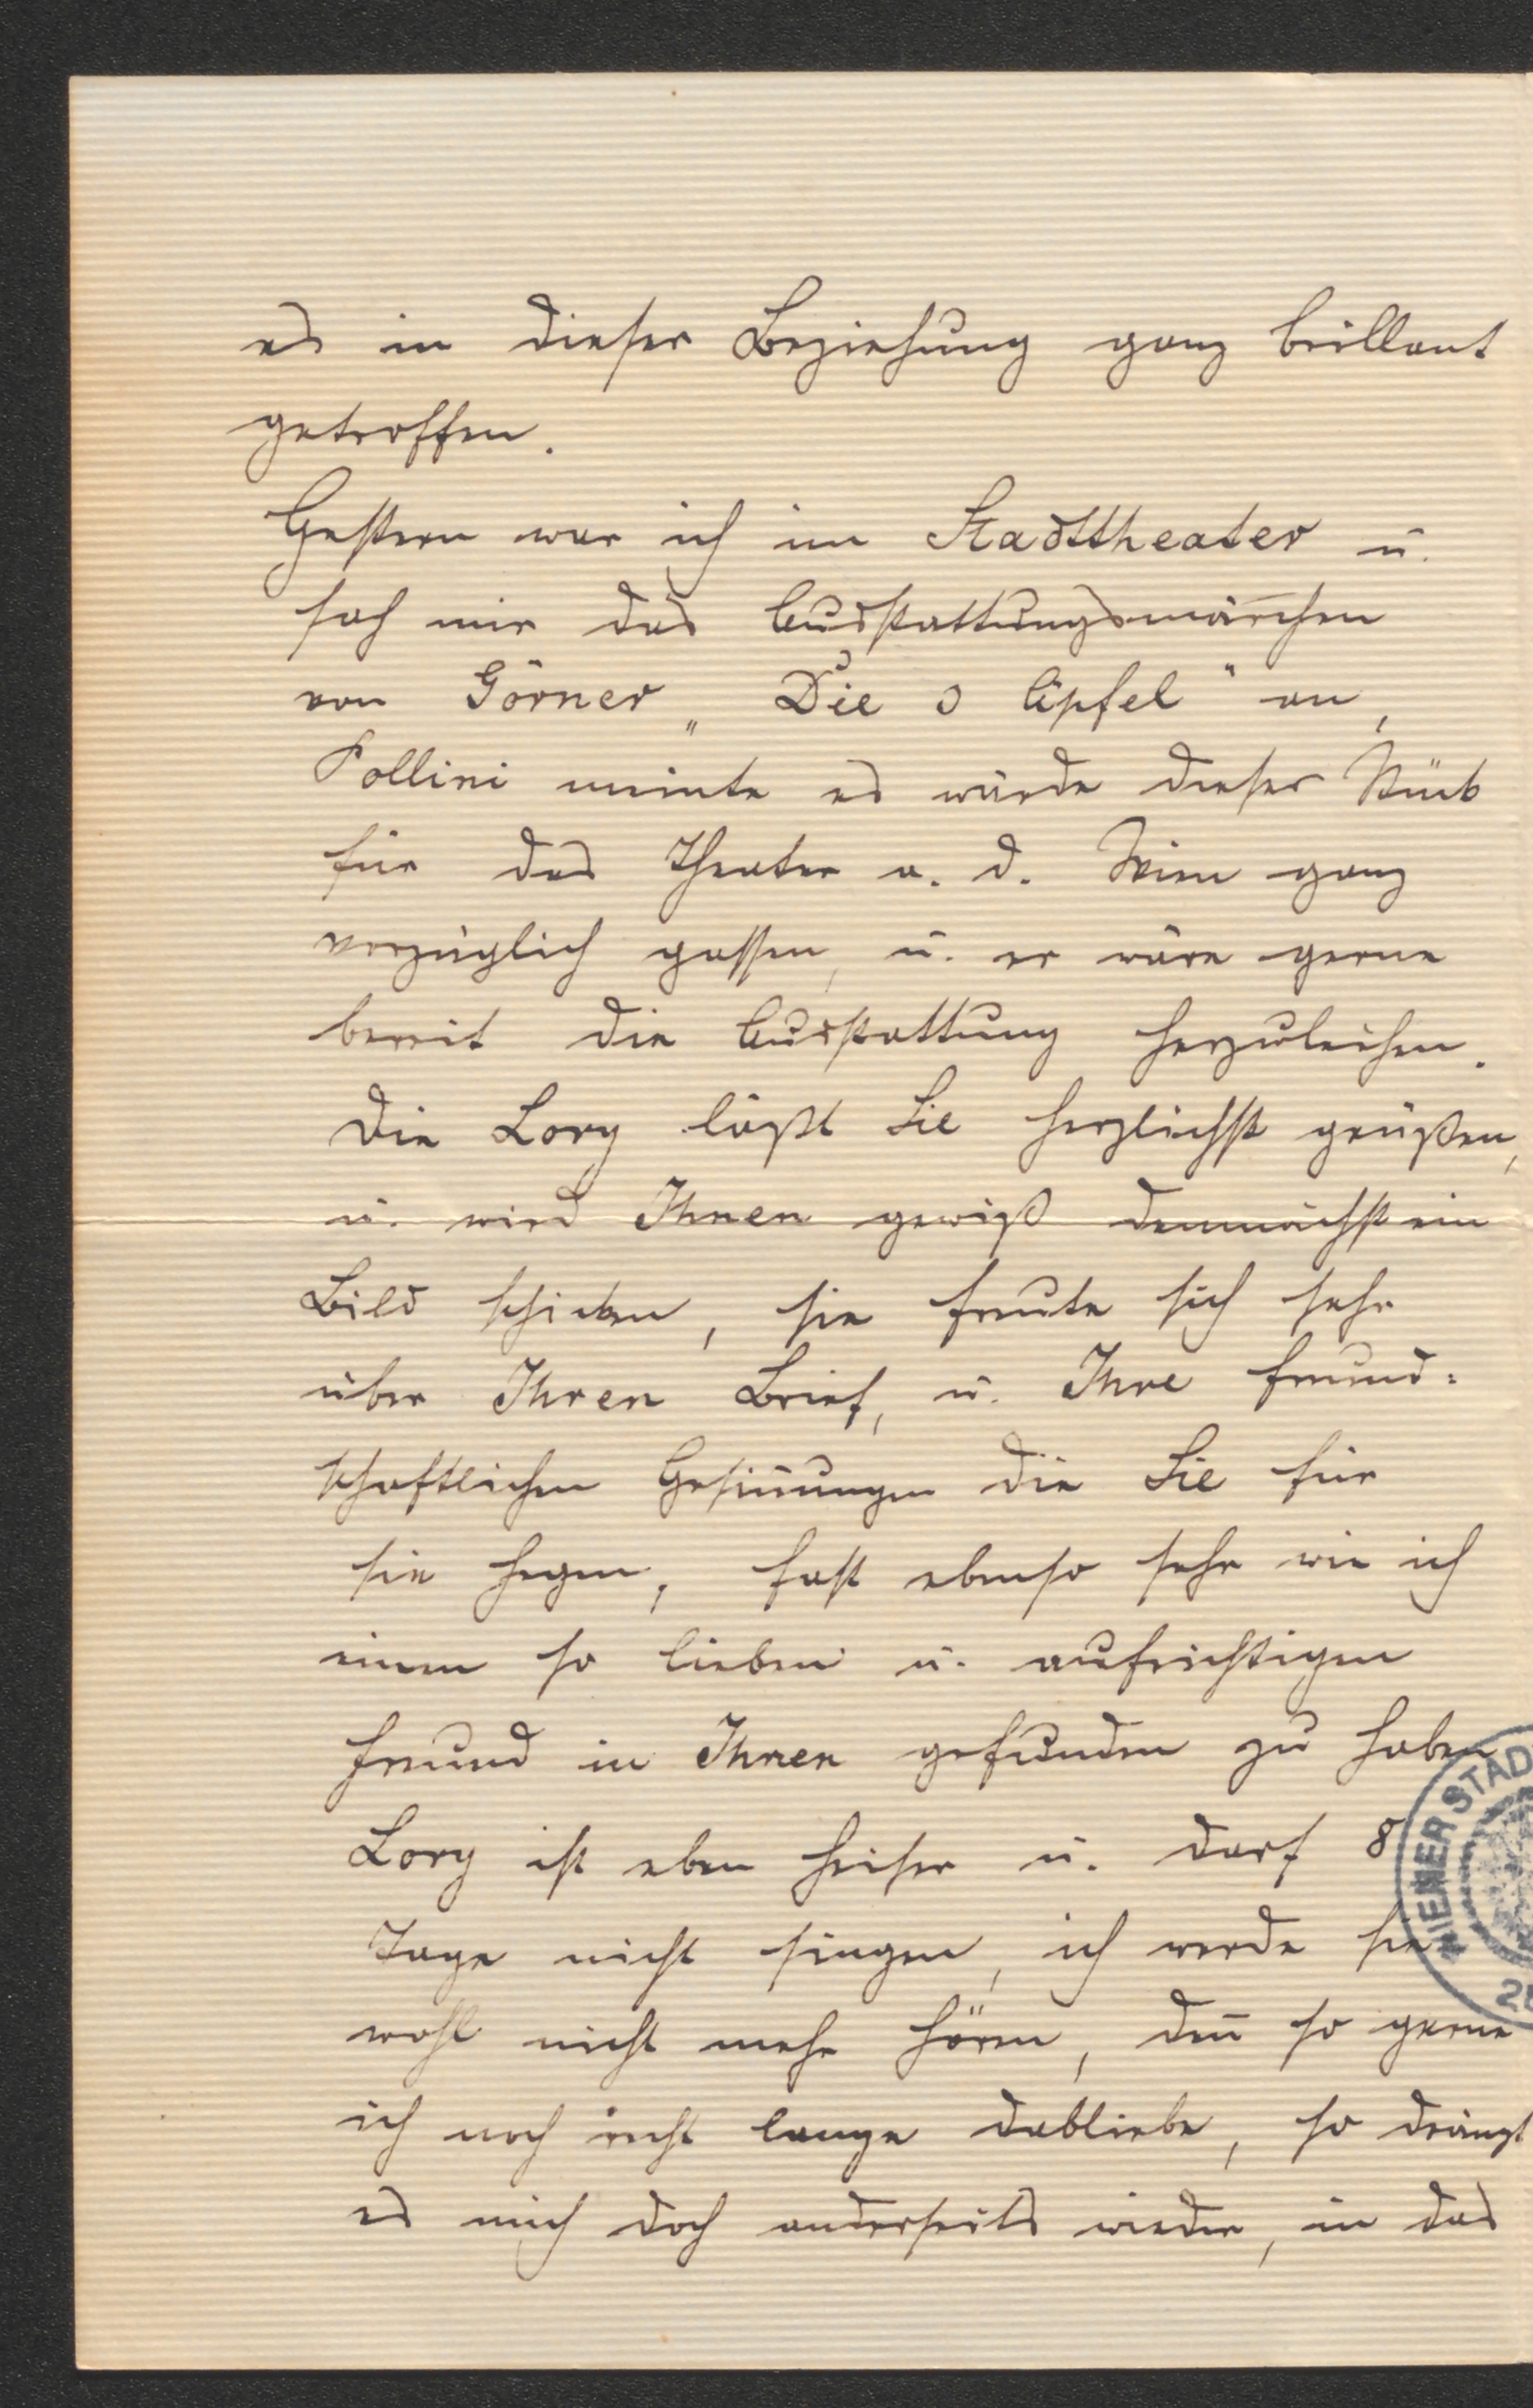 es in dieser Beziehung ganz brillant
getroffen.
Gestern war ich im Stadttheater u.
sah mir das Ausstattungsmärchen
von Görner „Die 3 Äpfel" an,
Pollini meinte es würde dieses Stück
für das Theater a. d. Wien ganz
vorzüglich passen, u. er wäre gerne
bereit die Ausstattung herzuleihen.
Die Lory läßt Sie herzlichst grüßen,
u. wird Ihnen gewiß demnächst ein
Bild schicken, sie freute sich sehr
über Ihren Brief, u. Ihre freund=
schaftlichen Gesin̅ungen die Sie für
sie hegen, fast ebenso sehr wie ich
einen so lieben u. aufrichtigen
Freund in Ihnen gefunden zu haben
Lory ist eben heiser u. darf 8
Tage nicht singen, ich werde sie
wohl nicht mehr hören, den̅ so gerne
ich noch recht lange dabliebe, so drängt
es mich doch anderseits wieder, in das
WIENER STAD